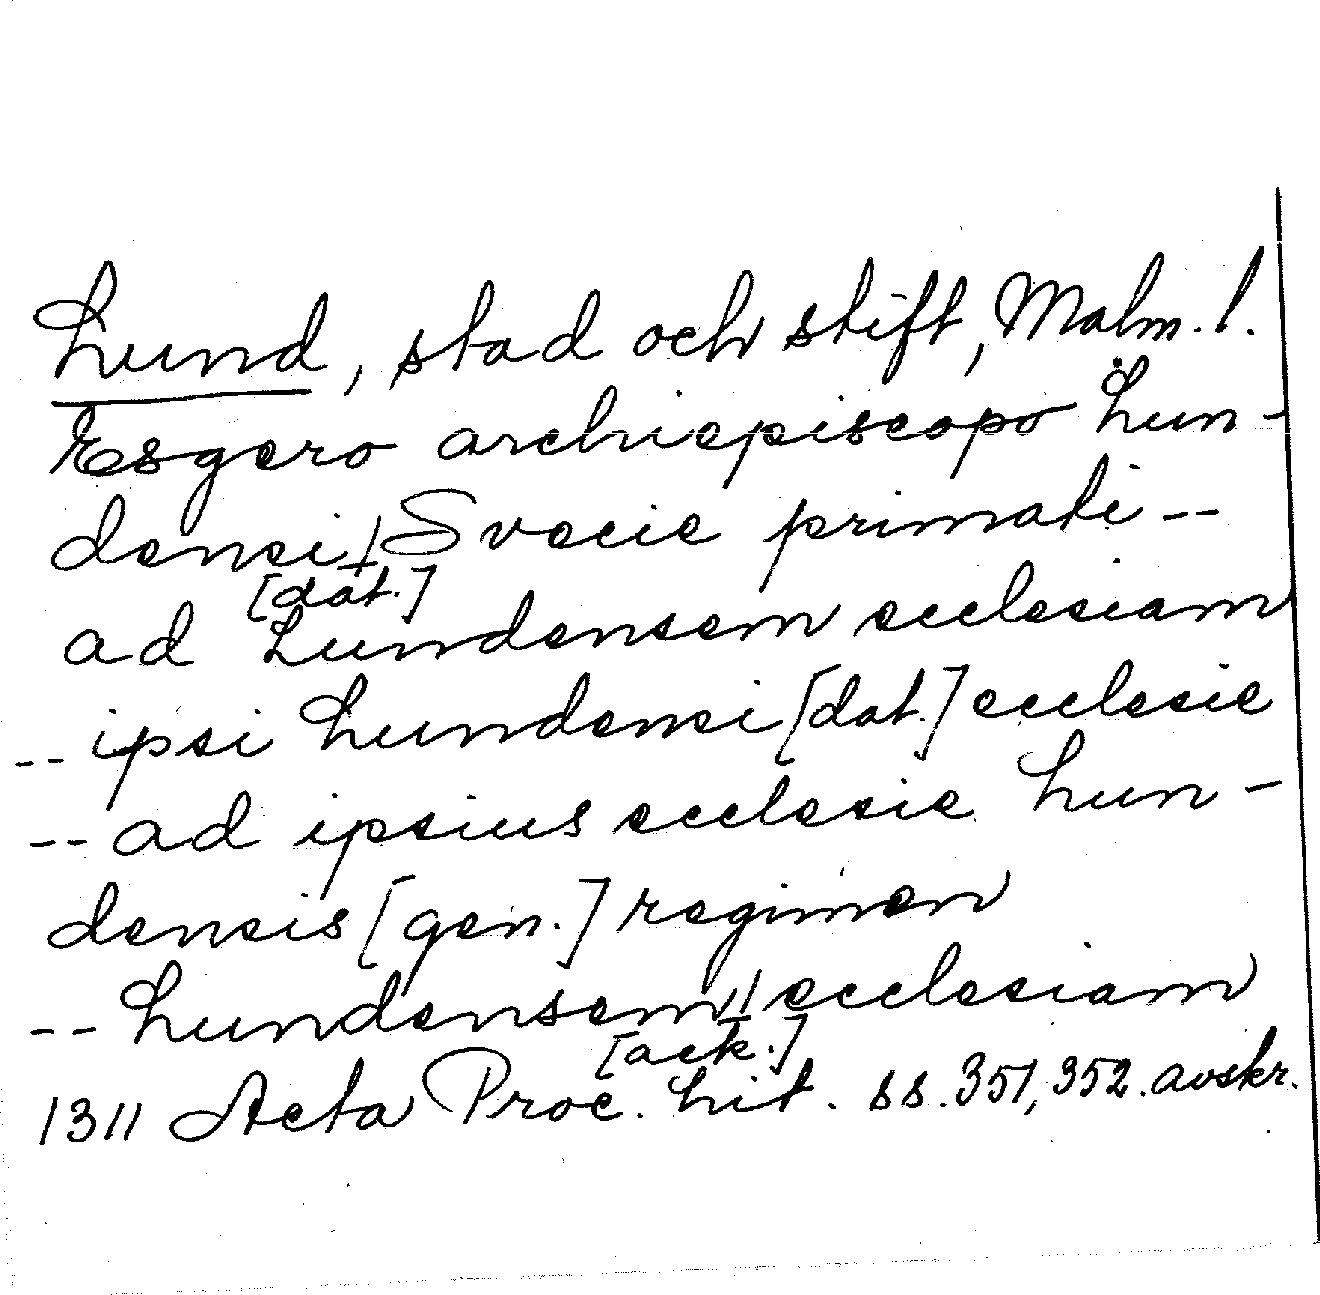 Lund, stad och stift, Malm. l.
Esgero archiepiscopo Lun-
densi Svecie primati --
[dat.]
ad Lundensem ecclesiam
-- ipsi Lundensi [dat.] ecclesie
-- ad ipsius ecclesie Lun-
densis [gen.] regimen
-- Lundensem ecclesiam
[ack.]
1311 Acta Proc. Lit. ss. 351, 352. avskr.